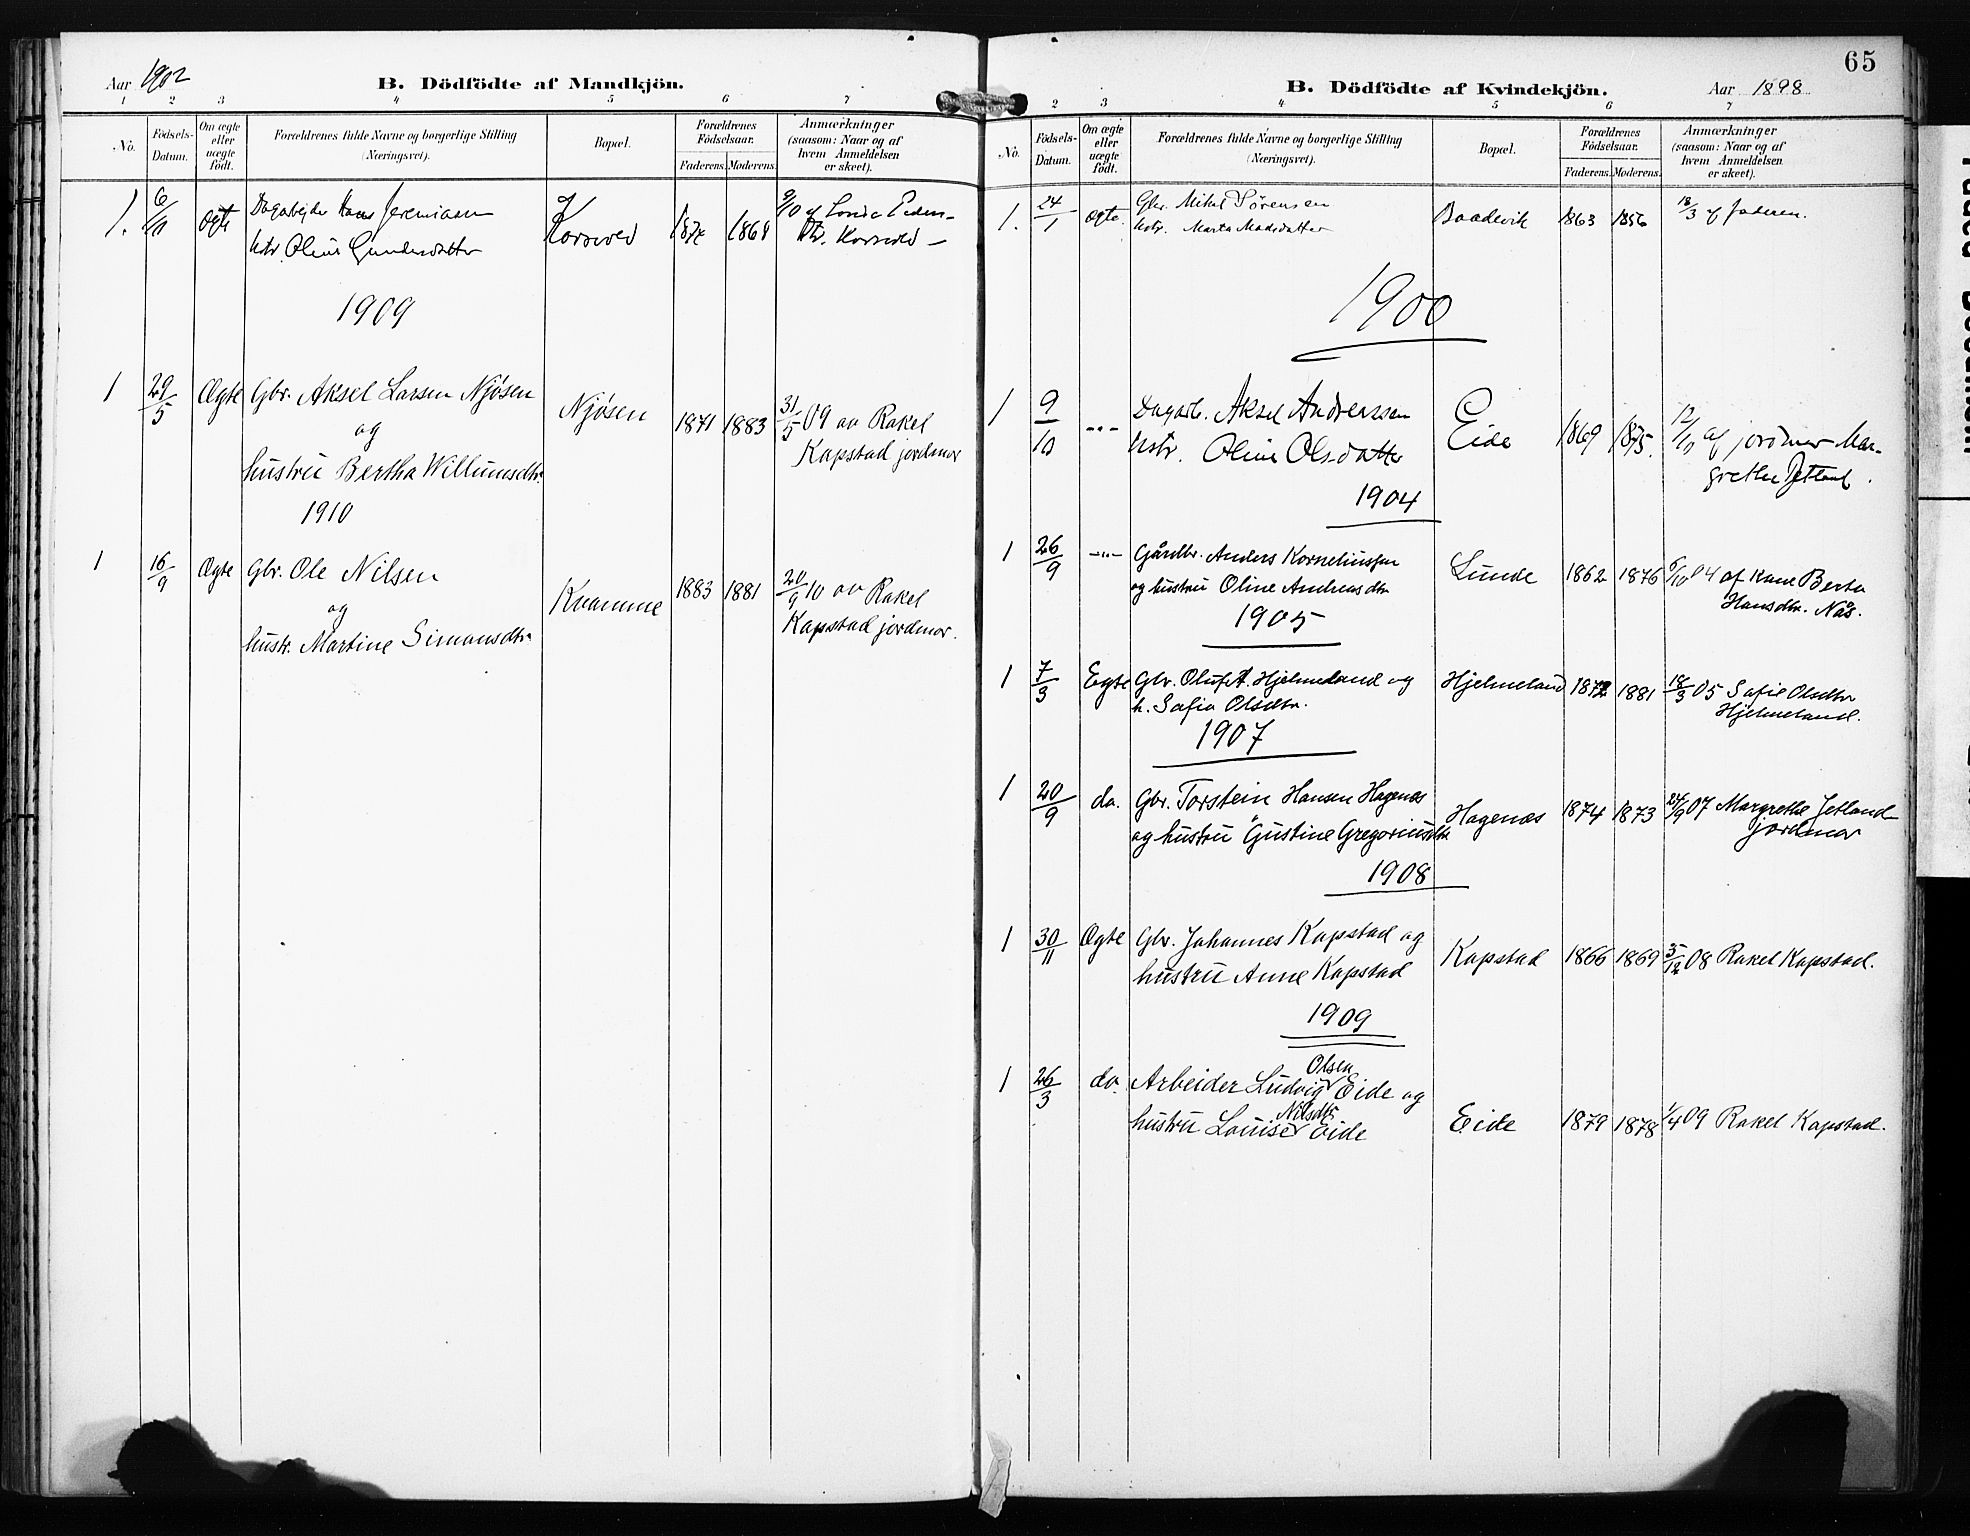 Aar 1902
B. Dödfödte af Mandkjön.
1 2 3 4 5 6 7
No.
Födsels-Datum.
Om ægte eller uægte født.
Forældrenes fulde Navne og borgerlige Stilling (Næringsvei).
Bopæl.
Forældrenes Födselsaar.
Faderens. Moderens.
Anmærkninger (saasom: Naar og af hvem Anmeldelsen er skeet).
1. 6/10 Ægte Dagarbejder Hans Jeremiasen
hstr. Oline Gundersdatter
Korsvold 1868
9/10 af
Korsvold
1909
1 29/5 Ægte Gbr. Aksel Larsen Njøsen
og
hustru Bertha Willumsdtr.
Njøsen 1871 1883
31/5 09 av Rakel
Kapstad jordmor
1910
1 16/9 Ægte Gbr. Ole Nilsen
og
hustr. Martine Simonsdtr.
Kvamme 1883 1881
20/9 10 av Rakel
Kapstad jordmor.
65
B. Dödfödte af Kvindekjön.
Aar 1898
2 3 4 5 6 7
No.
Födsels-Datum.
Om ægte eller uægte født.
Forældrenes fulde Navne og borgerlige Stilling (Næringsvei).
Bopæl.
Forældrenes Födselsaar.
Faderens. Moderens.
Anmærkninger (saasom: Naar og af hvem Anmeldelsen er skeet).
1. 24/1 Ægte. Gbr. Mikel Sörensen
hstr. Marta Madsdatter
Baadevik 1863 1856
18/3 af Faderen.
1900
1 9/10 -"- Dagarb. Aksel Andreassen
hstr. Oline Olsdatter
Eide 1869 1875.
12/10 af jordmor Mar-
grethe Jetland.
1904
1 26/9 -"- Gårdbr. Anders Korneliussen
og hustru Oline Andreasdtr
Lunde 1862 1876
6/10 04 af kone Berta
Hansdtr. Nås.
1905
1 7/3 Egte Gbr. Oluf A. Hjelmeland og
h. Safia Olsdtr.
Hjelmeland 1872 1881
18/3 05 Safie Olsdtr
Hjelmeland.
1907
1 20/9 do. Gbr. Torstein Hansen Hagenæs
og hustru Gustine Gregoriusdtr
Hagenæs 1874 1873
24/9 07 Margrethe Jetland
jordmor
1908
1 30/11 Ægte Gbr. Johannes Kapstad og
hustru Anne Kapstad
Kapstad 1866 1869
5/12 08 Rakel Kapstad.
1909
1 26/3 do. Arbeider Ludvig Olsen Eide og
hustru Louise Nilsdtr Eide
Eide 1879 1878
1/4 09 Rakel Kapstad.